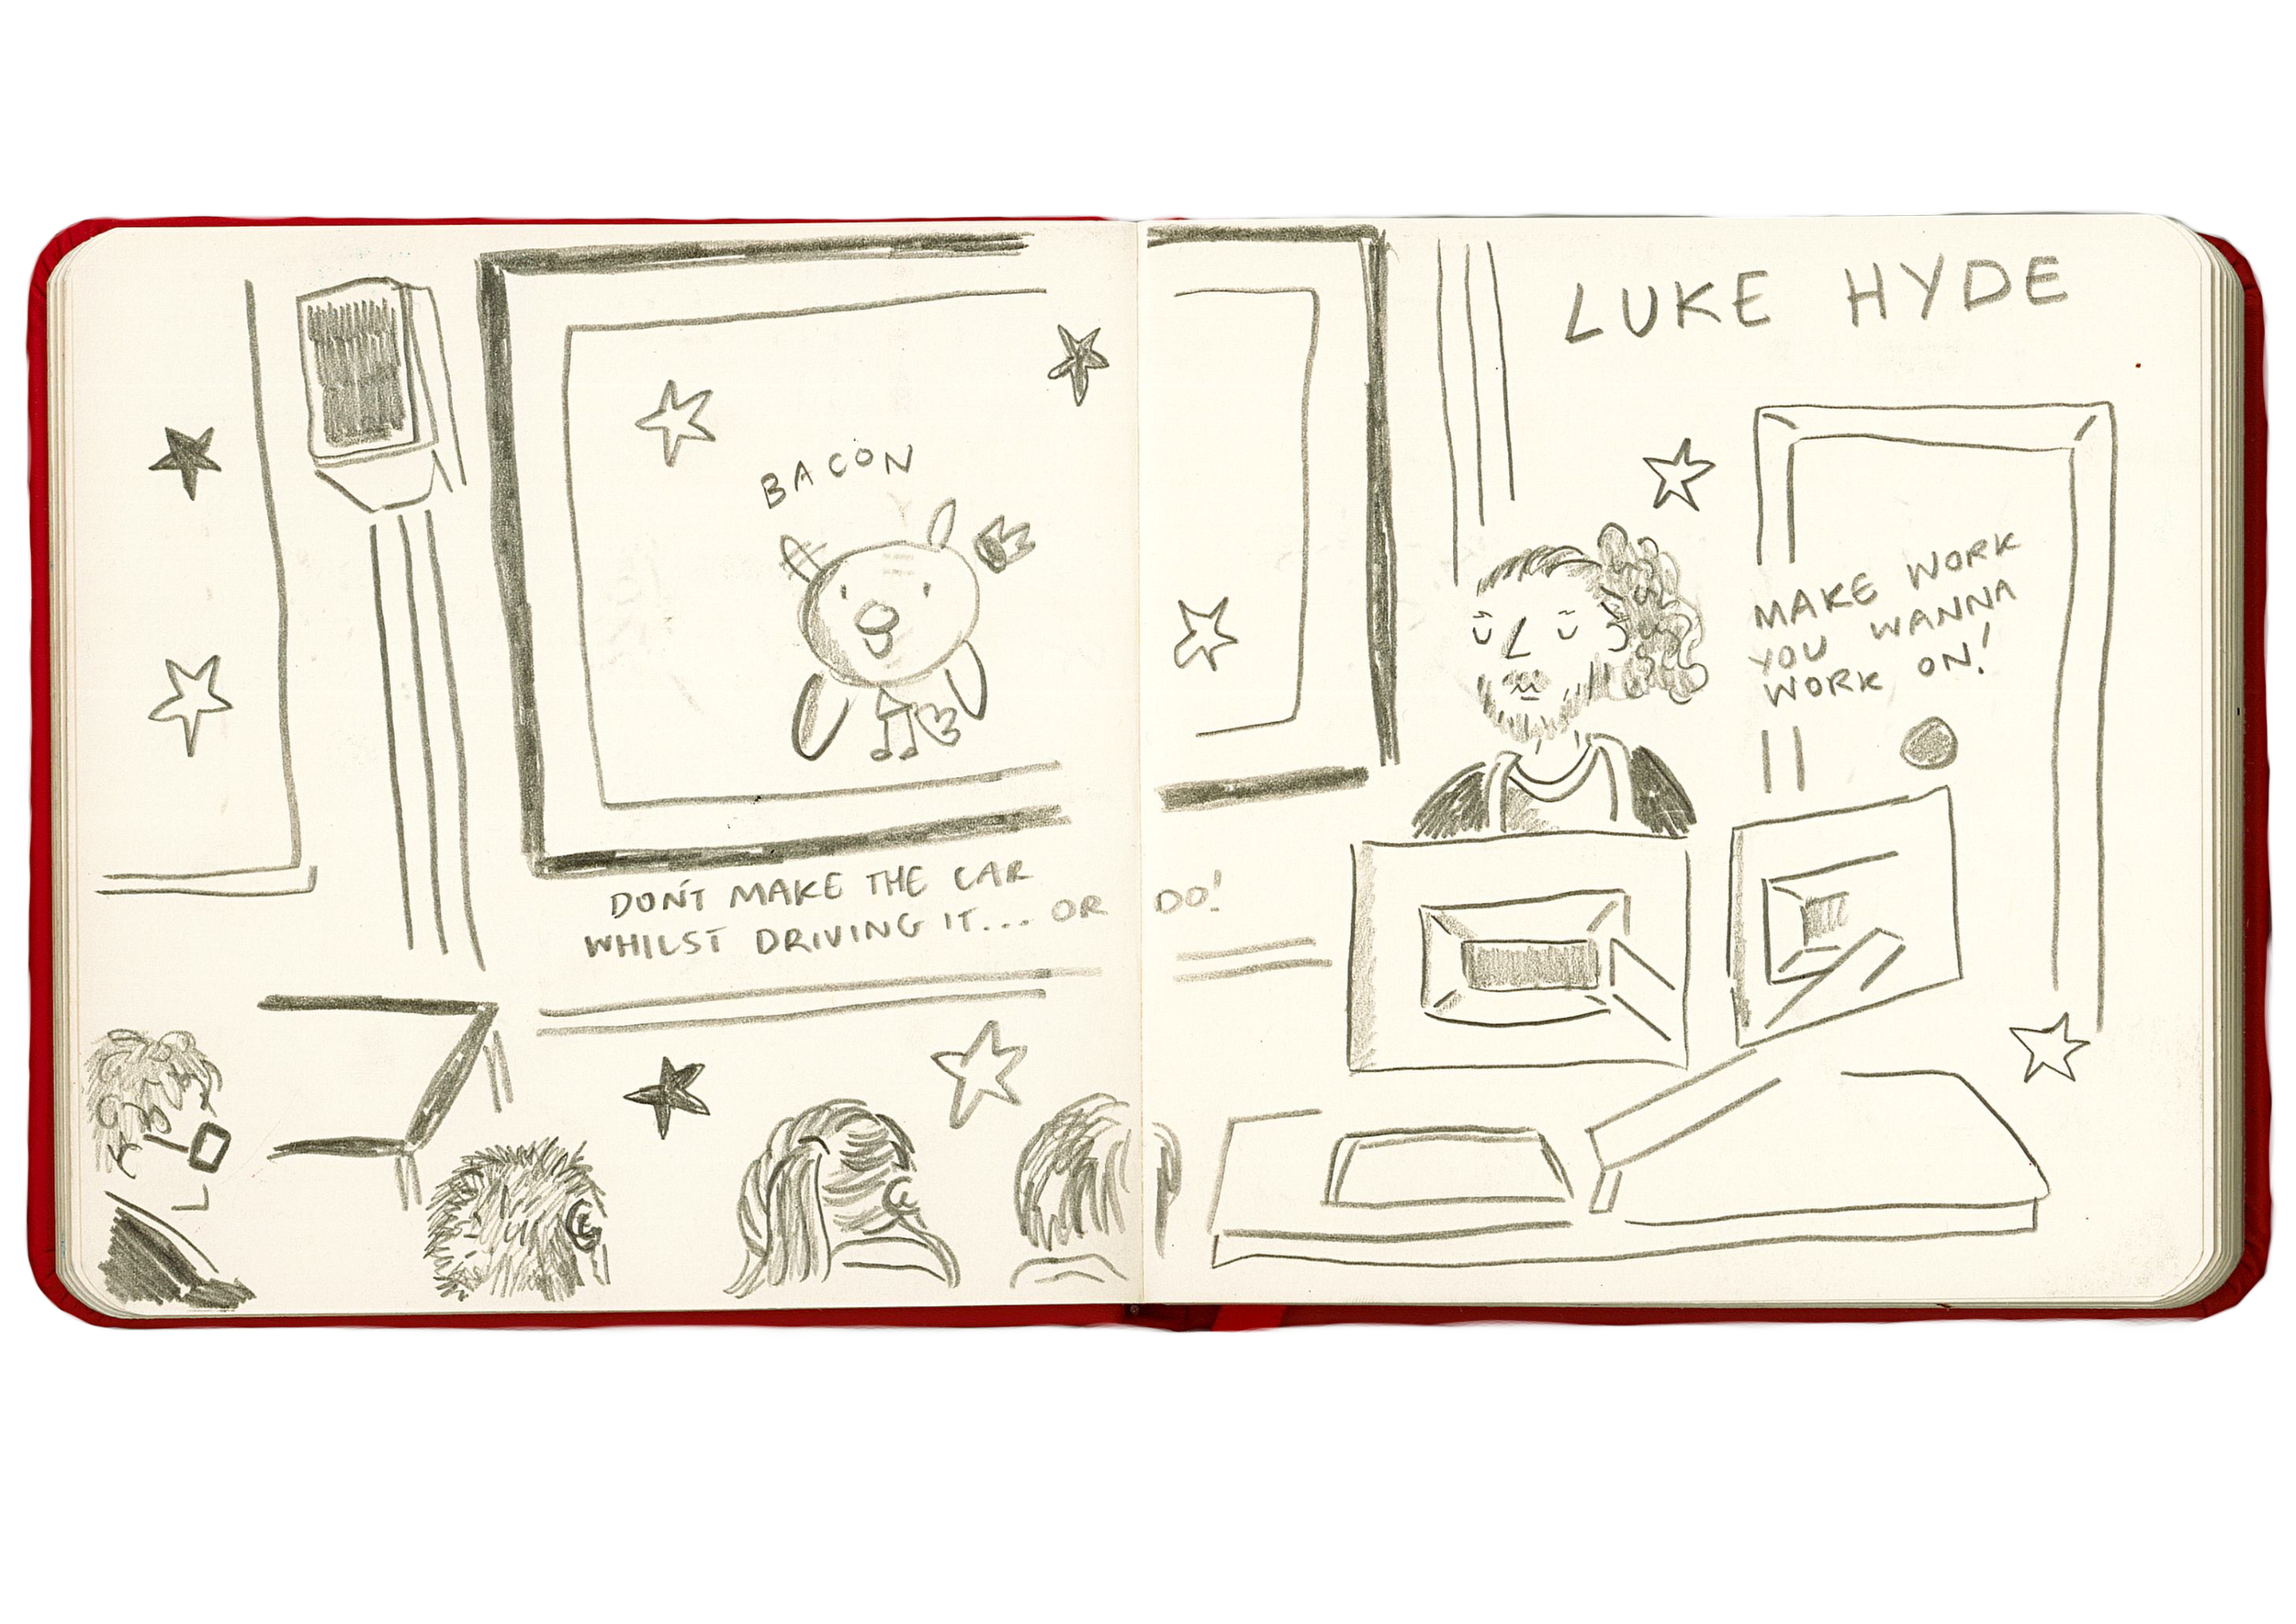 BACON
DON'T MAKE THE CAR
WHILST DRIVING IT... OR DO!
LUKE HYDE
MAKE WORK
YOU WANNA
WORK ON!